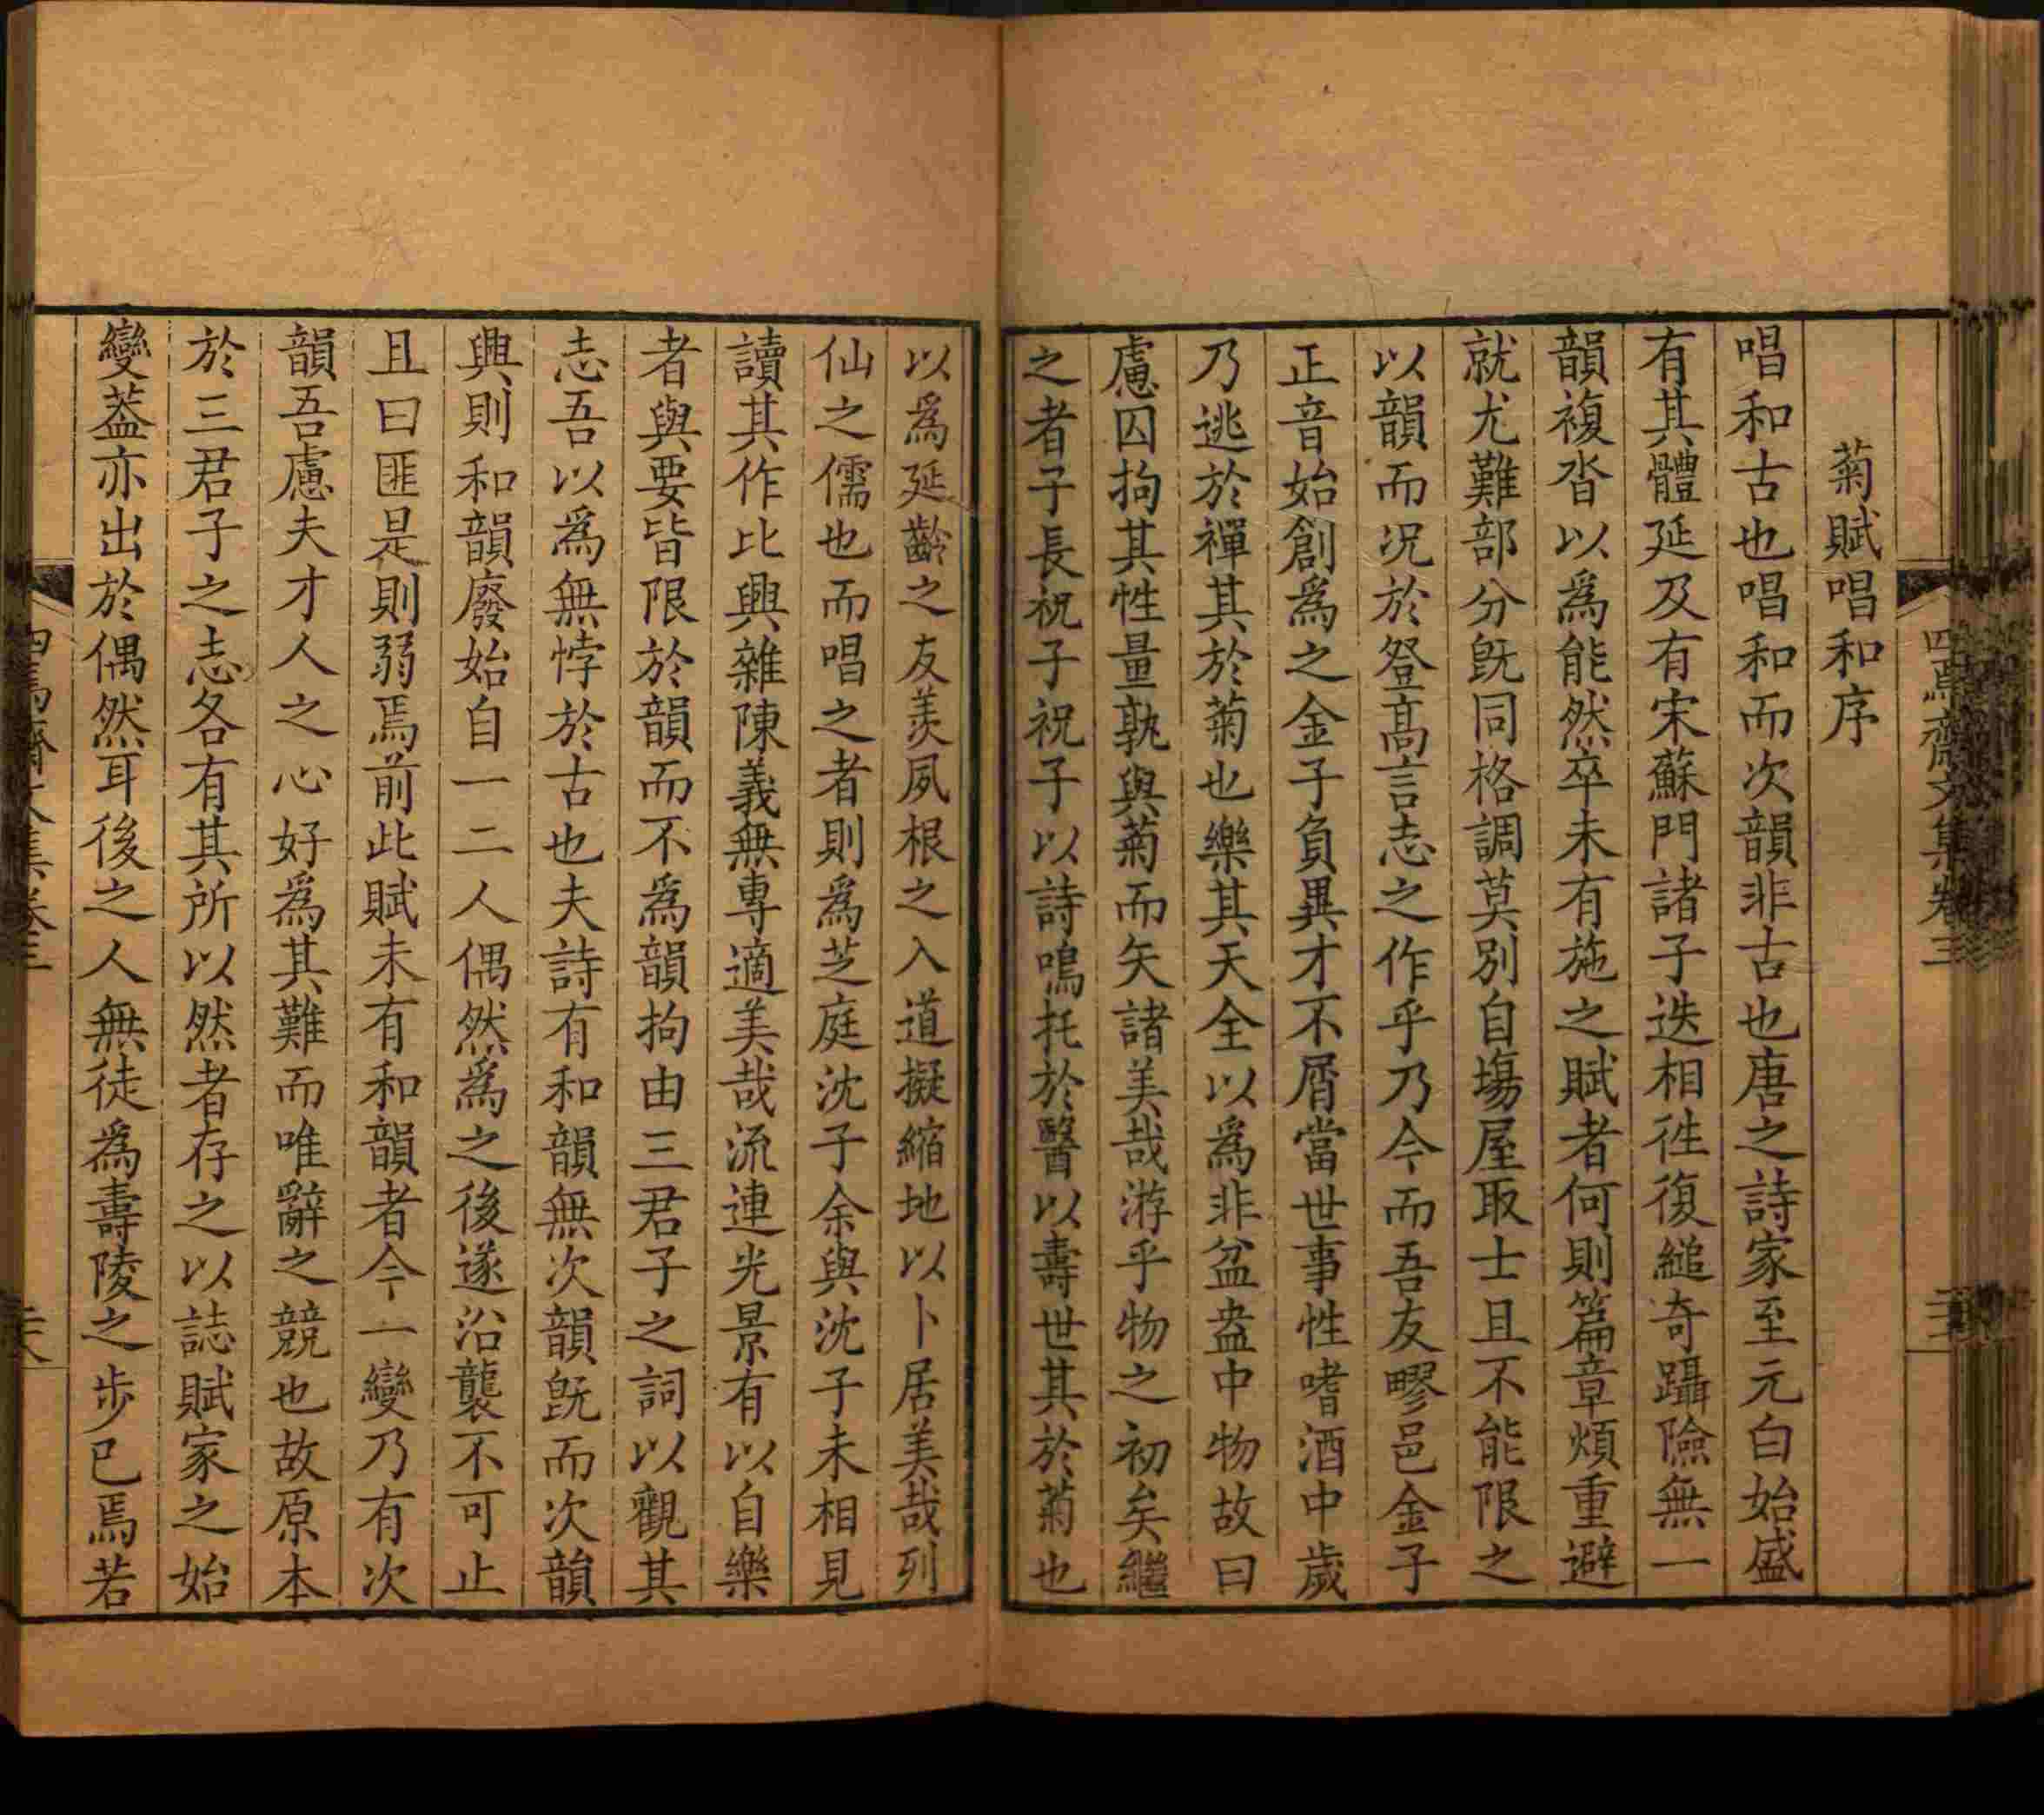 四焉齋文集卷三
菊賦唱和序
唱和古也唱和而次韻非古也唐之詩家至元白始盛
有其體延及有宋蘇門諸子迭相徃復縋奇躡險無一
韻複沓以為能然卒未有施之賦者何則篇章煩重避
就尤難部分旣同格調莫別自塲屋取士且不能限之
以韻而況於登高言志之作乎乃今而吾友疁邑金子
正音始創爲之金子負異才不屑當世事性嗜酒中歲
乃逃於禪其於菊也樂其天全以爲非盆盎中物故曰
慮囚拘其性量孰與菊而矢諸美哉游乎物之初矣繼
之者子長祝子祝子以詩鳴托於醫以壽世其於菊也
以爲延齡之友羨夙根之入道擬縮地以卜居美哉列
仙之儒也而唱之者則爲芝庭沈子余與沈子未相見
讀其作比興雜陳義無專適美哉流連光景有以自樂
者與要皆限於韻而不爲韻拘由三君子之詞以觀其
志吾以爲無悖於古也夫詩有和韻無次韻旣而次韻
興則和韻廢始自一二人偶然爲之後遂沿襲不可止
且曰匪是則弱焉前此賦未有和韻者今一變乃有次
韻吾慮夫才人之心好爲其難而唯辭之競也故原本
於三君子之志各有其所以然者存之以誌賦家之始
變葢亦出於偶然耳後之人無徒爲壽陵之步已焉若